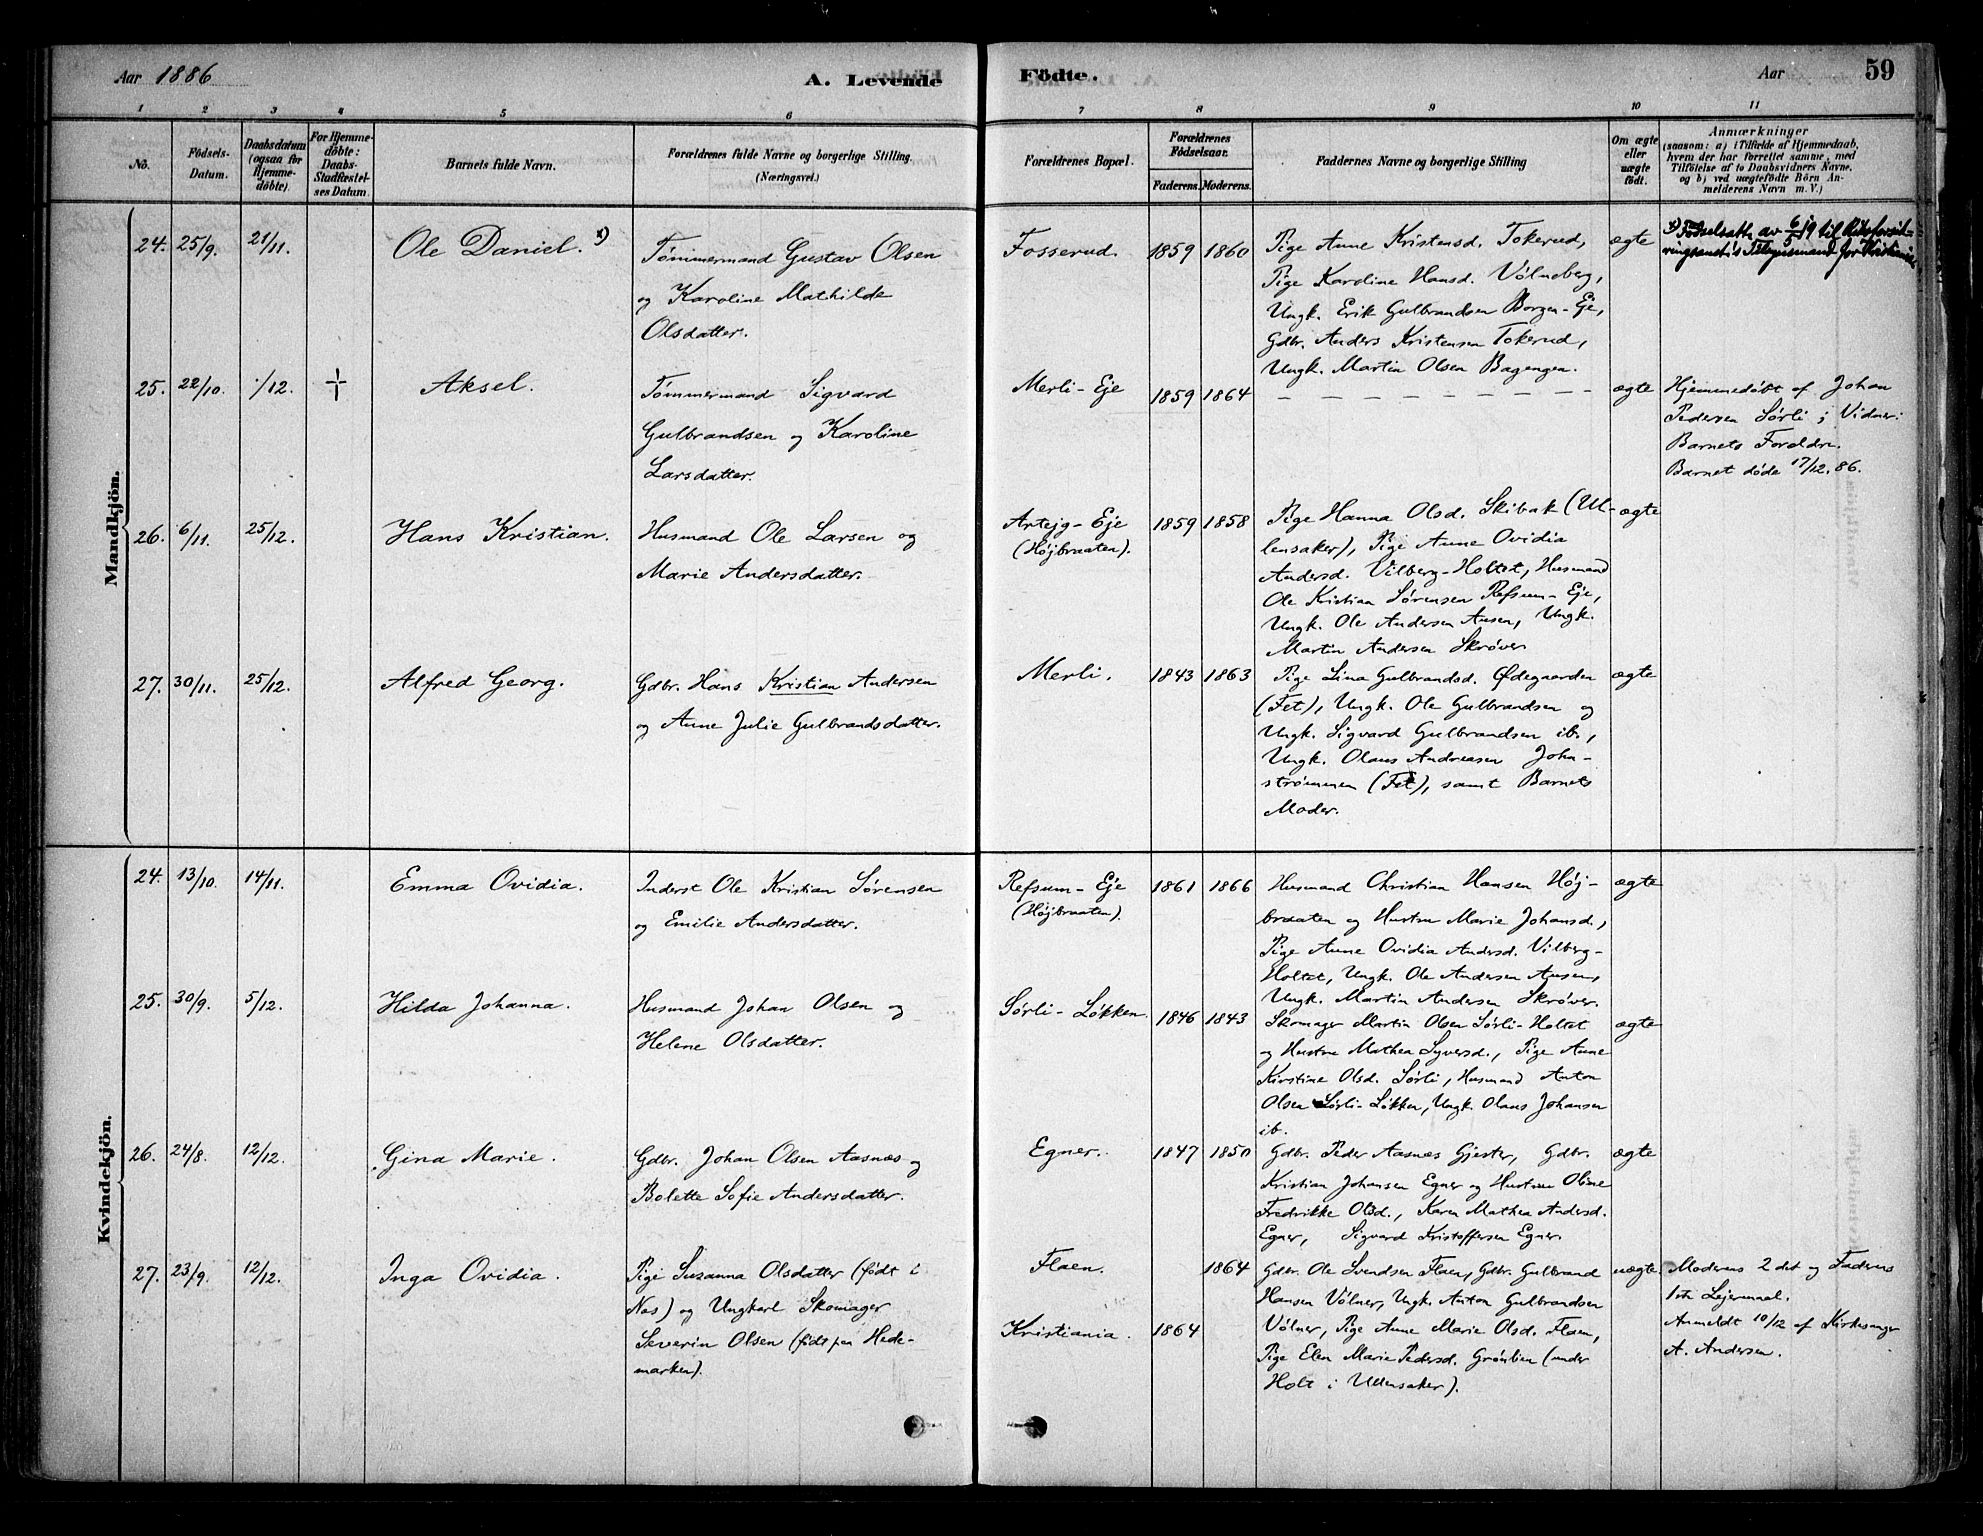 Aar 1886
A. Levende
Födte.
Aar
59
1 2 3 4 5 6 7 8 9 10 11
No.
Födsels-
Datum.
Daabsdatum
(ogsaa for
Hjemme-
döbte).
For Hjemme-
döbte:
Daabs-
Stadfæstel-
ses Datum.
Barnets fulde Navn.
Forældrenes fulde Navne og borgerlige Stilling.
(Næringsvei.)
Forældrenes Bopæl.
Forældrenes
Födselsaar.
Faderens. Moderens.
Faddernes Navne og borgerlige Stilling
Om ægte
eller
uægte
födt.
Anmærkninger
(saasom: a) i Tilfælde af Hjemmedaab,
hvem der har forrettet samme, med
Tilföielse af to Daabsvidners Navne,
og b) ved uægtefödte Börn An-
melderens Navn m. V.)
Mandkjön.
24. 25/9. 21/11. Ole Daniel. x)
Tømmermand Gustav Olsen
og Karoline Mathilde
Olsdatter.
Fosserud. 1859 1860
Pige Anne Kristensd. Tokerud,
Pige Karoline Hansd. Vølneberg,
Ungk. Erik Gulbrandsen Borgen-Eje,
Gdbr. Anders Kristensen Tokerud,
Ungk. Martin Olsen Bagengen.
ægte
x) Fødselsatt. av 6/5 19 til
for Kristiania
25. 22/10. 1/12. † Aksel.
Tømmermand Sigvard
Gulbrandsen og Karoline
Larsdatter.
Merli-Eje 1859 1864
— — — — — — — —
ægte
Hjemmedøbt af Johan
Pedersen Sørli; Vidner:
Barnets Forældre.
Barnet døde 17/12. 86.
26. 6/11. 25/12. Hans Kristian.
Husmand Ole Larsen og
Marie Andersdatter.
Artejg-Eje
(Højbraaten).
1859 1858
Pige Hanna Olsd. Skibak (Ul-
lensaker), Pige Anne Ovidia
Andersd. Vilberg-Holtet, Husmand
Ole Kristian Sørensen Refsum-Eje,
Ungk. Ole Andersen Ausen, Ungk.
Martin Andersen Skrøver
ægte
27. 30/11. 25/12. Alfred Georg.
Gdbr. Hans Kristian Andersen
og Anne Julie Gulbrandsdatter.
Merli. 1843 1863
Pige Lina Gulbrandsd. Ødegaarden
(Fet), Ungk. Ole Gulbrandsen og
Ungk. Sigvard Gulbrandsen ib.,
Ungk. Olaus Andreasen Joha-
strømmen (Fet), samt Barnets
Moder.
ægte
Kvindekjön.
24. 13/10. 14/11. Emma Ovidia.
Inderst Ole Kristian Sørensen
og Emilie Andersdatter.
Refsum-Eje
(Højbraaten).
1861 1866
Husmand Christian Hansen Høj-
braaten og Hustru Marie Johansd.,
Pige Anne Ovidia Andersd. Vilberg-
Holtet, Ungk. Ole Andersen Ausen,
Ungk. Martin Andersen Skrøver.
ægte
25. 30/9. 5/12. Hilda Johanna.
Husmand Johan Olsen og
Helene Olsdatter.
Sørli-Løkken. 1846 1843
Skomager Martin Olsen Sørli-Holtet
og Hustru Mathea Syversd., Pige Anne
Kirstine Olsd. Sørli, Husmand Anton
Olsen Sørli-Løkken, Ungk. Olaus Johansen
ib.
ægte
26. 24/8. 12/12. Gina Marie.
Gdbr. Johan Olsen Aasnæs og
Bolette Sofie Andersdatter.
Egner. 1847 1850
Gdbr. Peder Aasnæs Gjester, Gdbr.
Kristian Johansen Egner og Hustru Oline
Fredrikke Olsd., Karen Mathea Andersd.
Egner, Sigvard Kristoffersen Egner.
ægte
27. 23/9. 12/12. Inga Ovidia.
Pige Suzanna Olsdatter (født i
Nas) og Ungkarl Skomager
Severin Olsen (født paa Hede-
marken).
Flaen. 1864
Kristiania. 1864
Gdbr. Ole Svendsen Flaen, Gdbr. Gulbrand
Hansen Vølner, Ungk. Anton Gulbrandsen
Vølner, Pige Anne Marie Olsd. Flaen,
Pige Elen Marie Pedersd. Grønlien (under
Holt i Ullensaker).
uægte.
Moderens 2det og Faderens
1ste Lejermaal.
Anmeldt 10/12 af Kirkesanger
A. Andersen.